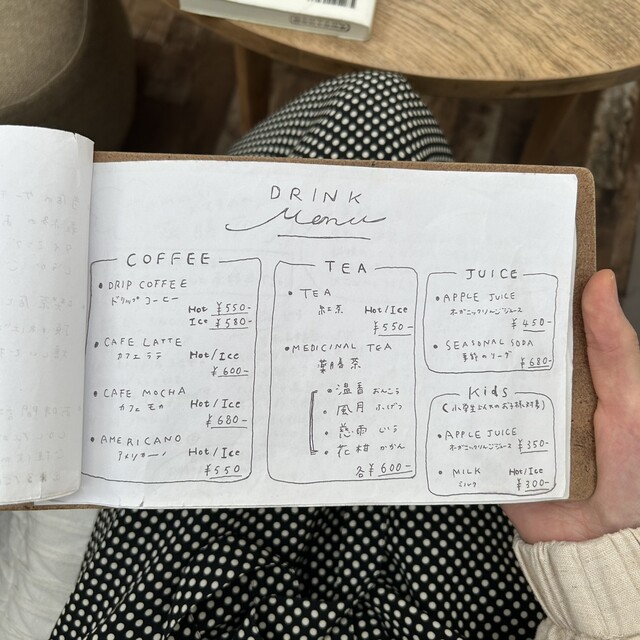 DRINK
Menu
COFFEE
• DRIP COFFEE
ドリップコーヒー
Hot ¥550-
Ice ¥580-
• CAFE LATTE
カフェラテ Hot/Ice
¥600-
• CAFE MOCHA
カフェモカ Hot/Ice
¥680-
• AMERICANO
アメリカーノ Hot/Ice
¥550
TEA
• TEA
紅茶 Hot/Ice
¥550-
• MEDICINAL TEA
薬膳茶
• 温香 おんこう
• 風月 ふげつ
• 慈雨 じう
• 花柑 かかん
各¥600-
JUICE
• APPLE JUICE
オーガニックりんごジュース
¥450-
• SEASONAL SODA
季節のソーダ
¥680-
Kids
(小学生以下のお子様対象)
• APPLE JUICE
オーガニックりんごジュース ¥350-
• MILK Hot/Ice
ミルク ¥300-